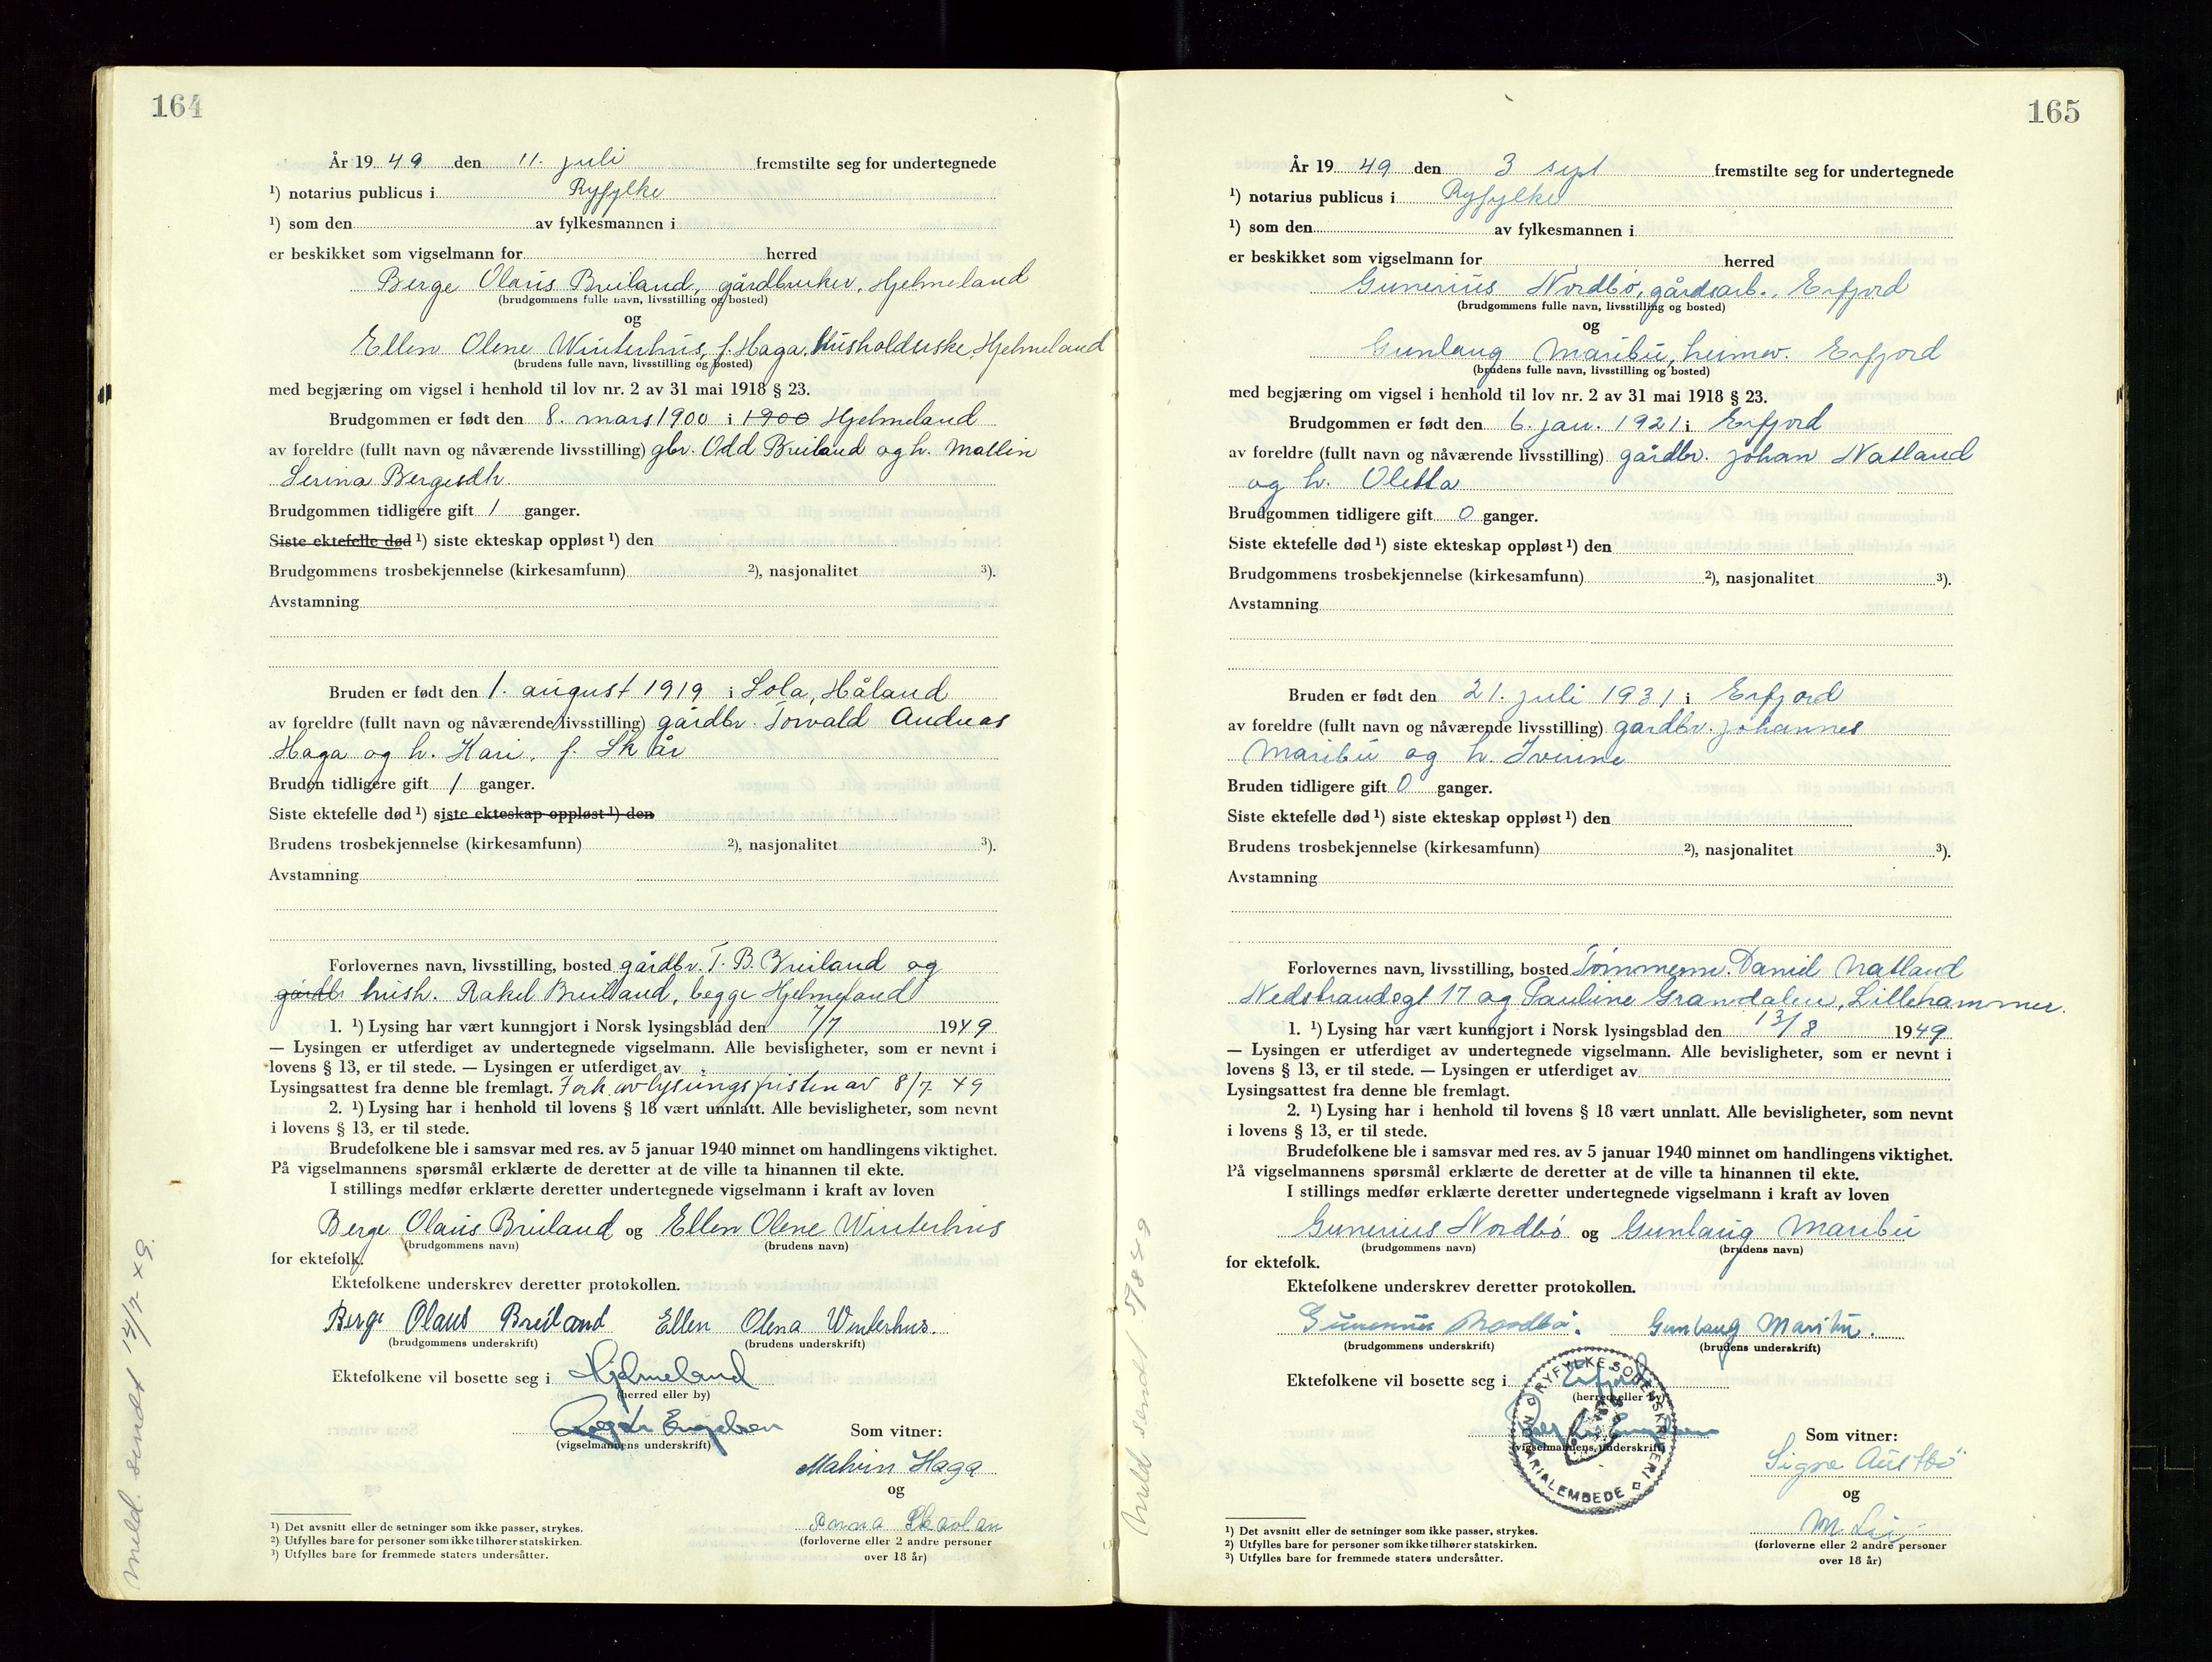 164
År 1949 den 11. juli fremstilte seg for undertegnede
¹) notarius publicus i Ryfylke
¹) som den av fylkesmannen i
er beskikket som vigselmann for herred
Berge Olaus Breiland, gårdbruker, Hjelmeland
(brudgommens fulle navn, livsstilling og bosted)
og
Ellen Olene Winterhus, f. Haga, husholderske, Hjelmeland
(brudens fulle navn, livsstilling og bosted)
med begjæring om vigsel i henhold til lov nr. 2 av 31 mai 1918 § 23.
Brudgommen er født den 8. mars 1900 i 1900 Hjelmeland
av foreldre (fullt navn og nåværende livsstilling) gbr. Odd Breiland og h. Mallin
Serina Bergesdtr.
Brudgommen tidligere gift 1 ganger.
Siste ektefelle død ¹) siste ekteskap oppløst ¹) den
Brudgommens trosbekjennelse (kirkesamfunn) ²), nasjonalitet ³).
Avstamning
Bruden er født den 1. august 1919 i Sola, Håland
av foreldre (fullt navn og nåværende livsstilling) gårdbr. Torvald Andreas
Haga og h. Kari, f. Skår
Bruden tidligere gift 1 ganger.
Siste ektefelle død ¹) siste ekteskap oppløst ¹) den
Brudens trosbekjennelse (kirkesamfunn) ²), nasjonalitet ³).
Avstamning
Forlovernes navn, livsstilling, bosted gårdbr. T. B. Breiland og
gårdb hush. Rakel Breiland, begge Hjelmeland
1. ¹) Lysing har vært kunngjort i Norsk lysingsblad den 7/7 1949
— Lysingen er utferdiget av undertegnede vigselmann. Alle bevisligheter, som er nevnt i
lovens § 13, er til stede. — Lysingen er utferdiget av
Lysingsattest fra denne ble fremlagt. Fork. av lysingsfristen av 8/7 49
2. ¹) Lysing har i henhold til lovens § 18 vært unnlatt. Alle bevisligheter, som nevnt
i lovens § 13, er til stede.
Brudefolkene ble i samsvar med res. av 5 januar 1940 minnet om handlingens viktighet.
På vigselmannens spørsmål erklærte de deretter at de ville ta hinannen til ekte.
I stillings medfør erklærte deretter undertegnede vigselmann i kraft av loven
Berge Olaus Breiland og Ellen Olene Winterhus
(brudgommens navn) (brudens navn)
for ektefolk.
Ektefolkene underskrev deretter protokollen.
Berge Olaus Breiland Ellen Olena Winterhus.
(brudgommens underskrift) (brudens underskrift)
Ektefolkene vil bosette seg i Hjelmeland
(herred eller by)
Engelsen
(vigselmannens underskrift)
Som vitner:
Malvin Haga
og
Anna
(forloverne eller 2 andre personer
over 18 år)
¹) Det avsnitt eller de setninger som ikke passer, strykes.
²) Utfylles bare for personer som ikke tilhører statskirken.
³) Utfylles bare for fremmede staters undersåtter.
meld. sendt 14/7-49.
165
År 1949 den 3 sept fremstilte seg for undertegnede
¹) notarius publicus i Ryfylke
¹) som den av fylkesmannen i
er beskikket som vigselmann for herred
Gunerius Nordbø, gårdsarb., Erfjord
(brudgommens fulle navn, livsstilling og bosted)
og
Gunlaug Maribu, heimev. Erfjord
(brudens fulle navn, livsstilling og bosted)
med begjæring om vigsel i henhold til lov nr. 2 av 31 mai 1918 § 23.
Brudgommen er født den 6. jan. 1921 i Erfjord
av foreldre (fullt navn og nåværende livsstilling) gårdbr. Johan Natland
og h. Oletta
Brudgommen tidligere gift 0 ganger.
Siste ektefelle død ¹) siste ekteskap oppløst ¹) den
Brudgommens trosbekjennelse (kirkesamfunn) ²), nasjonalitet ³).
Avstamning
Bruden er født den 21. juli 1931 i Erfjord
av foreldre (fullt navn og nåværende livsstilling) gårdbr. Johannes
Maribu og h. Iverine
Bruden tidligere gift 0 ganger.
Siste ektefelle død ¹) siste ekteskap oppløst ¹) den
Brudens trosbekjennelse (kirkesamfunn) ²), nasjonalitet ³).
Avstamning
Forlovernes navn, livsstilling, bosted Tømmerm. Daniel Natland
Nedstrandsgt 17 og Pauline Grandalen, Lillehammer.
1. ¹) Lysing har vært kunngjort i Norsk lysingsblad den 13/8 1949
— Lysingen er utferdiget av undertegnede vigselmann. Alle bevisligheter, som er nevnt i
lovens § 13, er til stede. — Lysingen er utferdiget av
Lysingsattest fra denne ble fremlagt.
2. ¹) Lysing har i henhold til lovens § 18 vært unnlatt. Alle bevisligheter, som nevnt
i lovens § 13, er til stede.
Brudefolkene ble i samsvar med res. av 5 januar 1940 minnet om handlingens viktighet.
På vigselmannens spørsmål erklærte de deretter at de ville ta hinannen til ekte.
I stillings medfør erklærte deretter undertegnede vigselmann i kraft av loven
Gunerius Nordbø og Gunlaug Maribu
(brudgommens navn) (brudens navn)
for ektefolk.
Ektefolkene underskrev deretter protokollen.
Gunerius Nordbø. Gunlaug Maribu.
(brudgommens underskrift) (brudens underskrift)
Ektefolkene vil bosette seg i Erfjord
(herred eller by)
RYFYLKE SORENSKRIVERI NOTARIALEMBEDE
Engelsen
(vigselmannens underskrift)
Som vitner:
Signe Austbø
og
M. Lie
(forloverne eller 2 andre personer
over 18 år)
¹) Det avsnitt eller de setninger som ikke passer, strykes.
²) Utfylles bare for personer som ikke tilhører statskirken.
³) Utfylles bare for fremmede staters undersåtter.
Meld sendt